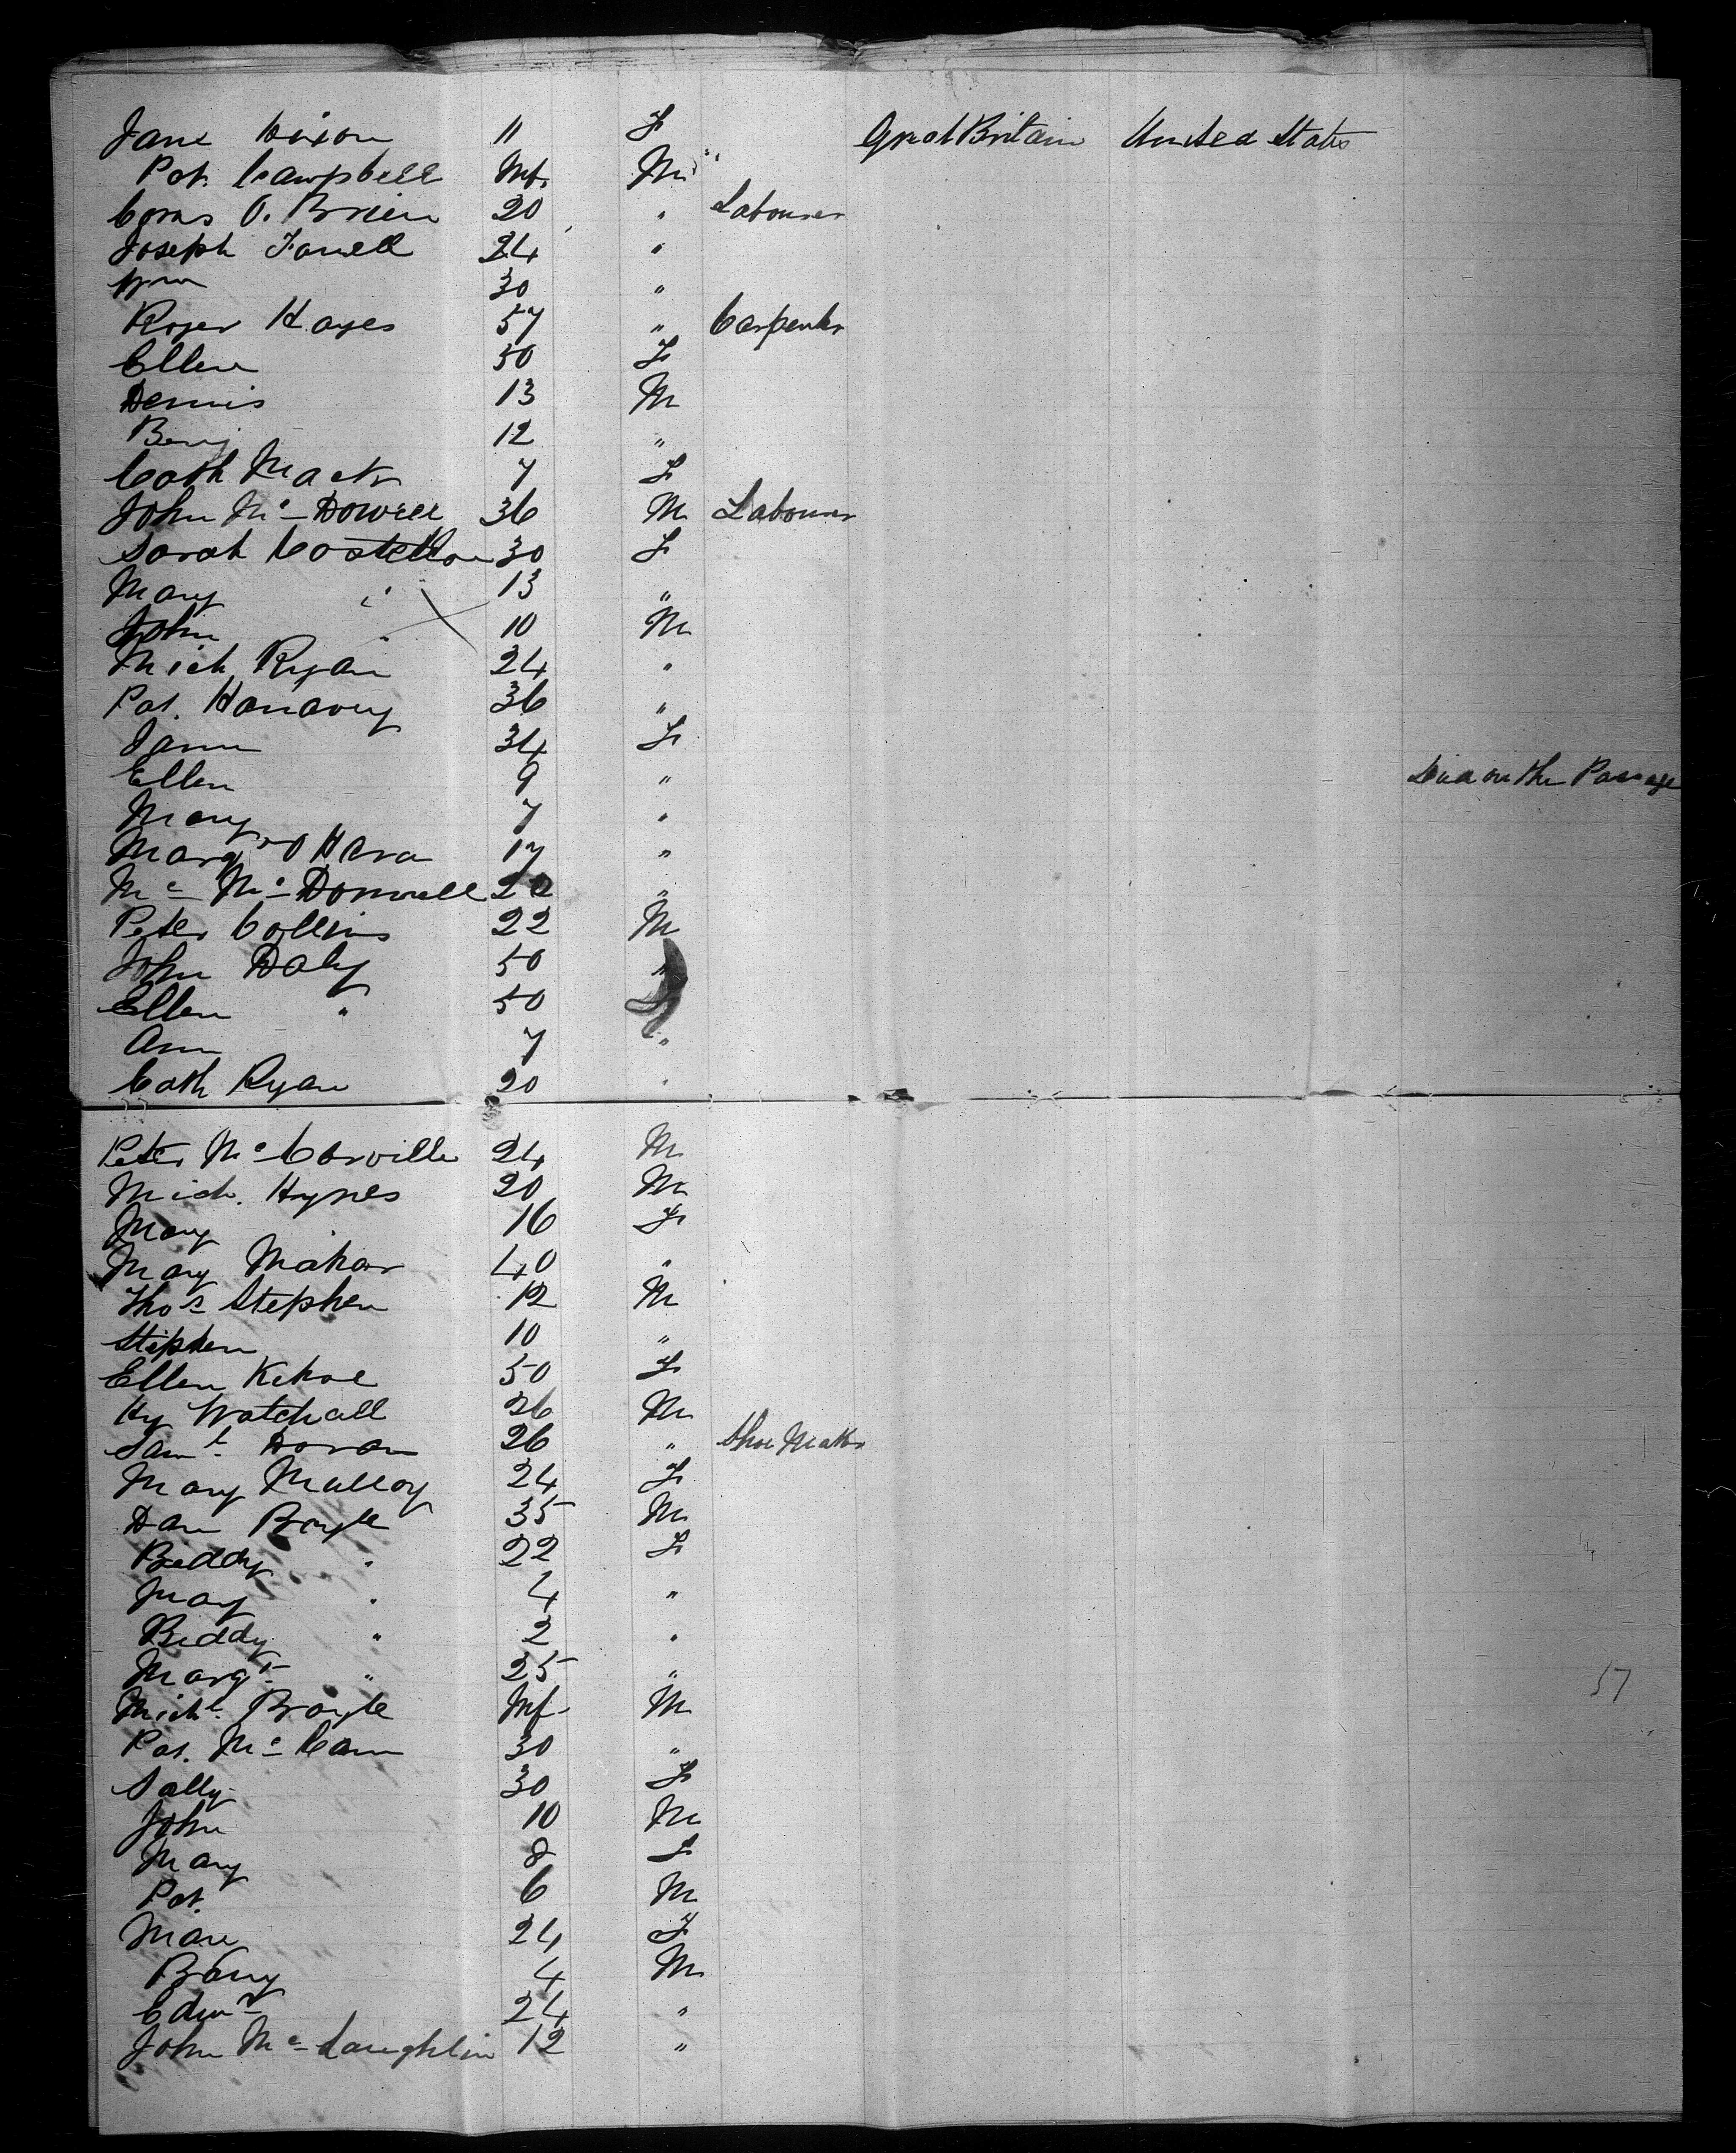 Jane Hixon 11 F Great Britain United States
Pat. Campbell Inf. M "
Corns O. Brien 20 " Labourer
Joseph Farrell 24 "
Wm 30 "
Roger Hayes 57 " Carpenter
Ellen 50 F
Dennis 13 M
Benj 12 "
Cath Mack 7 F
John Mc Dowell 36 M Labourer
Sarah Costelloe 30 F
Mary " 13 "
John " 10 M
Mich Ryan 24 "
Pat. Hanavey 36 "
Jane 34 F
Ellen 9 " Died on the Passage
Mary 7 "
Margt O Hara 17 "
Mc Mc Donnell 20 "
Peter Collins 22 M
John Daly 50 "
Ellen " 50 F
Ann 7 "
Cath Ryan 20 "
Peter Mc Corville 24 M
Mich. Hynes 20 M
Mary 16 F
Mary Mahar 40 "
Thos Stephen 12 M
Stephen 10 "
Ellen Kehoe 50 F
Hy Watchall 26 M
Saml Doran 26 " Shoe Maker
Mary Malloy 24 F
Dan Boyle 35 M
Biddy " 22 F
Mary " 4 "
Biddy " 2 "
Margt " 25 "
Michl Boyle Inf M
Pat. Mc Cann 30 "
Sally 30 F
John 10 M
Mary 8 F
Pat. 6 M
Mary 24 F
Barry 4 M
Edwd 24 "
John Mc Laughlin 12 "
57